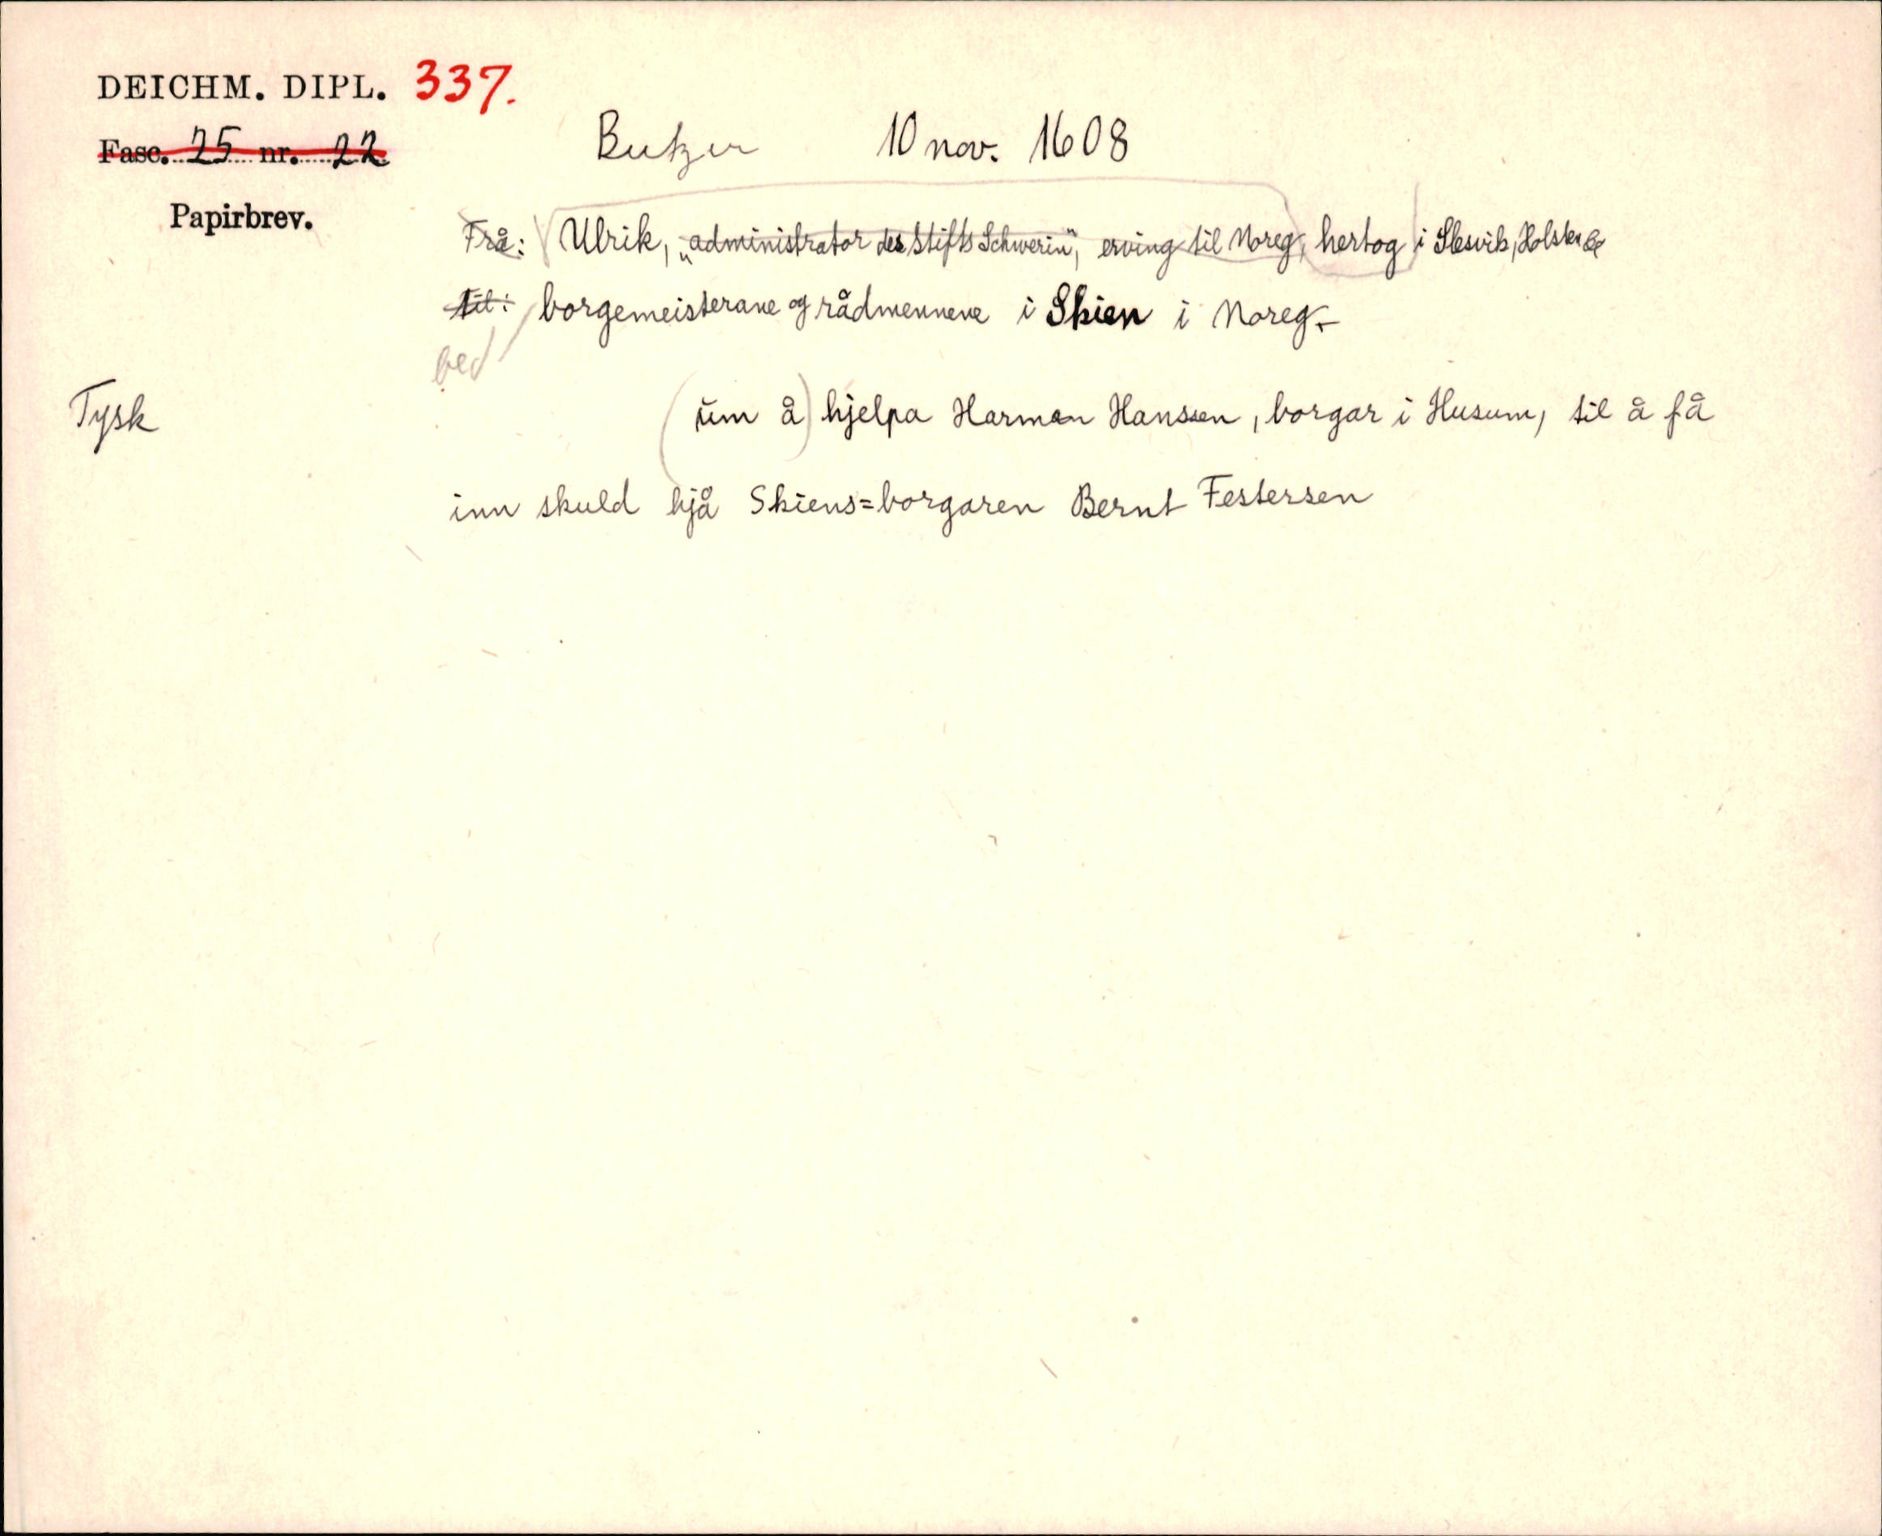 DEICHM. DIPL. 337.
Fasc. 25 nr. 22
Butzer 10 nov. 1608
Papirbrev.
Frå: Ulrik, „administrator des Stifts Schwerin", erving til Noreg, hertog i Slesvik, Holsten &c
Til: borgemeisterane og rådmennene i Skien i Noreg.-
bed
Tysk
(um å) hjelpa Harman Hanssen, borgar i Husum, til å få
inn skuld hjå Skiens=borgaren Bernt Festersen